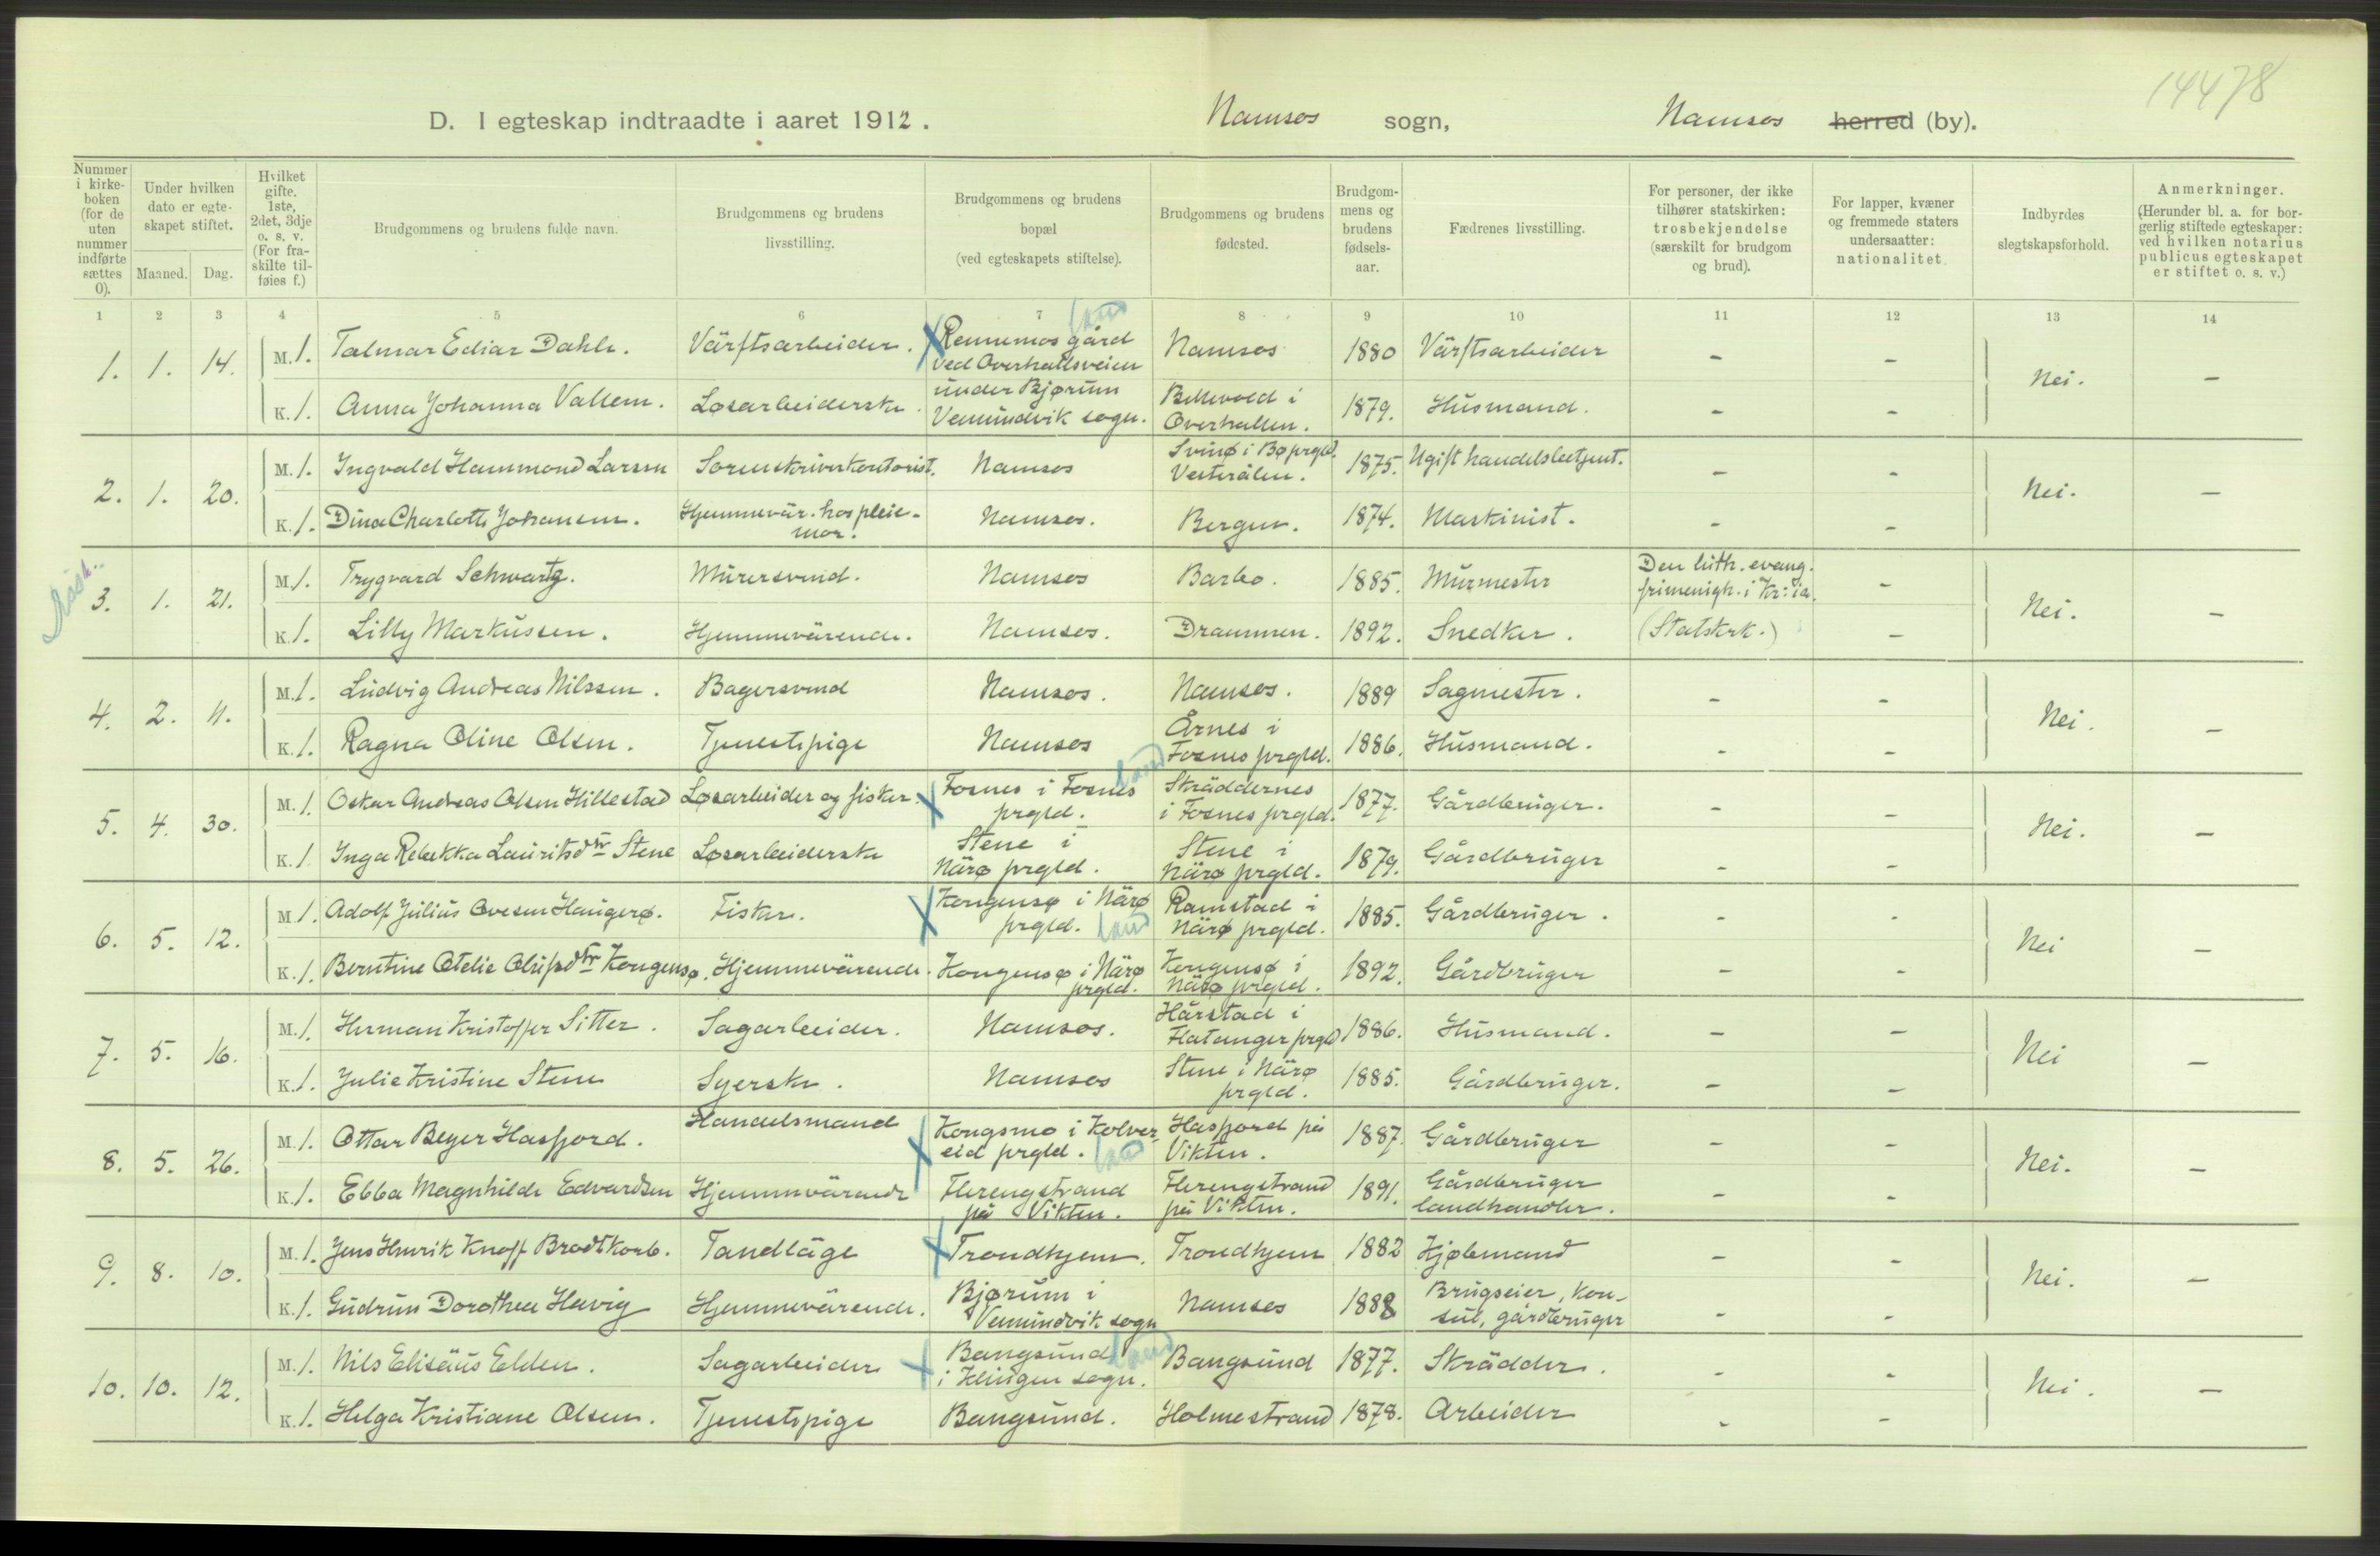 14478
D. I egteskap indtraadte i aaret 1912.
Namsos sogn,
Namsos herred (by).
Nummer i kirke-boken (for de uten nummer indførte sættes 0).
Under hvilken dato er egte-skapet stiftet.
Maaned.
Dag.
Hvilket gifte, 1ste, 2det, 3dje o. s. v. (For fra-skilte til-føies f.)
Brudgommens og brudens fulde navn.
Brudgommens og brudens livsstilling.
Brudgommens og brudens bopæl (ved egteskapets stiftelse).
Brudgommens og brudens fødested.
Brudgom-mens og brudens fødsels-aar.
Fædrenes livsstilling.
For personer, der ikke tilhører statskirken: trosbekjendelse (særskilt for brudgom og brud).
For lapper, kvæner og fremmede staters undersaatter: nationalitet
Indbyrdes slegtskapsforhold.
Anmerkninger. (Herunder bl. a. for bor-gerlig stiftede egteskaper: ved hvilken notarius publicus egteskapet er stiftet o. s. v.)
1 2 3 4 5 6 7 8 9 10 11 12 13 14
land
1. 1. 14. M. 1. Talmar Ediar Dahle. Värftsarbeider. Rennemos gård ved Overhallsveien Namsos 1880 Värftsarbeider - - Nei. -
K. 1. Anna Johanna Vallem. Løsarbeiderske. under Bjørum Vemundvik sogn. Bellevold i Overhallen. 1879. Husmand. - -
2. 1. 20. M. 1. Ingvald Hammond Larsen Sorenskriverkontorist. Namsos Svinø i Bø prgld. Vesterålen. 1875. Ugift handelsbetjent. - - Nei. -
K. 1. Dina Charlotte Johansen. Hjemmevär. hos pleie-mor. Namsos. Bergen. 1874. Maskinist. - -
3. 1. 21. M. 1. Trygvard Schwartz. Murersvend. Namsos Barbo. 1885. Murmester Den luth. evang. frimenigh. i Kr:ia. - Nei. -
K. 1. Lilly Markussen. Hjemmevärende. Namsos. Drammen. 1892. Snedker. (Statskrk.) -
4. 2. 11. M. 1. Ludvig Andreas Nilssen. Bagersvend Namsos. Namsos. 1889 Sagmester. - - Nei. -
K. 1. Ragna Oline Olsen. Tjenestepige Namsos Årnes i Fosnes prgld. 1886. Husmand. - -
land
5. 4. 30. M. 1. Oskar Andreas Olsen Hillestad Løsarbeider og fisker. Fosnes i Fosnes prgld. Sträddernes i Fosnes prgld. 1877. Gårdbruger. - - Nei. -
K. 1. Inga Rebekka Lauritsdtr Stene Løsarbeiderske Stene i Närø prgld. Stene i Närø prgld. 1879. Gårdbruger - -
6. 5. 12. M. 1. Adolf Julius Ovesen Haugerø. Fisker. Kongensø i Närø prgld. land Ramstad i Närø prgld. 1885. Gårdbruger. - - Nei -
K. 1. Berntine Otelie Olufsdtr Kongensø. Hjemmevärende. Kongensø i Närø prgld. Kongensø i Närø prgld. 1892. Gårdbruger - -
7. 5. 16. M. 1. Herman Kristoffer Sitter. Sagarbeider. Namsos. Hårstad i Flatanger prgld 1886. Husmand. - - Nei -
K. 1. Julie Kristine Stene Syerske. Namsos Stene i Närø prgld. 1885. Gårdbruger. - -
8. 5. 26. M. 1. Ottar Beyer Hasfjord. Handelsmand Kongsmo i Kolver-eid prgld. land Hasfjord på Vikten. 1887. Gårdbruger - - Nei. -
K. 1. Ebba Magnhilde Edvardsen Hjemmevärende Flerengstrand på Vikten. Flerengstrand på Vikten. 1891. Gårdbruger landhandler. - -
9. 8. 10. M. 1. Jens Henrik Knoff Brodtkorb. Tandläge Trondhjem. Trondhjem 1882 Kjøbmand - - Nei. -
K. 1. Gudrun Dorothea Havig Hjemmevärende. Bjørum i Vemundvik sogn Namsos 1888 Brugseier, kon-sul, gårdbruger - -
10. 10. 12. M. 1. Nils Elisäus Elden. Sagarbeider Bangsund i Klingen sogn. land Bangsund 1877. Skrädder. - - Nei. -
K. 1. Helga Kristiane Olsen. Tjenestepige Bangsund. Holmestrand 1878. Arbeider - -